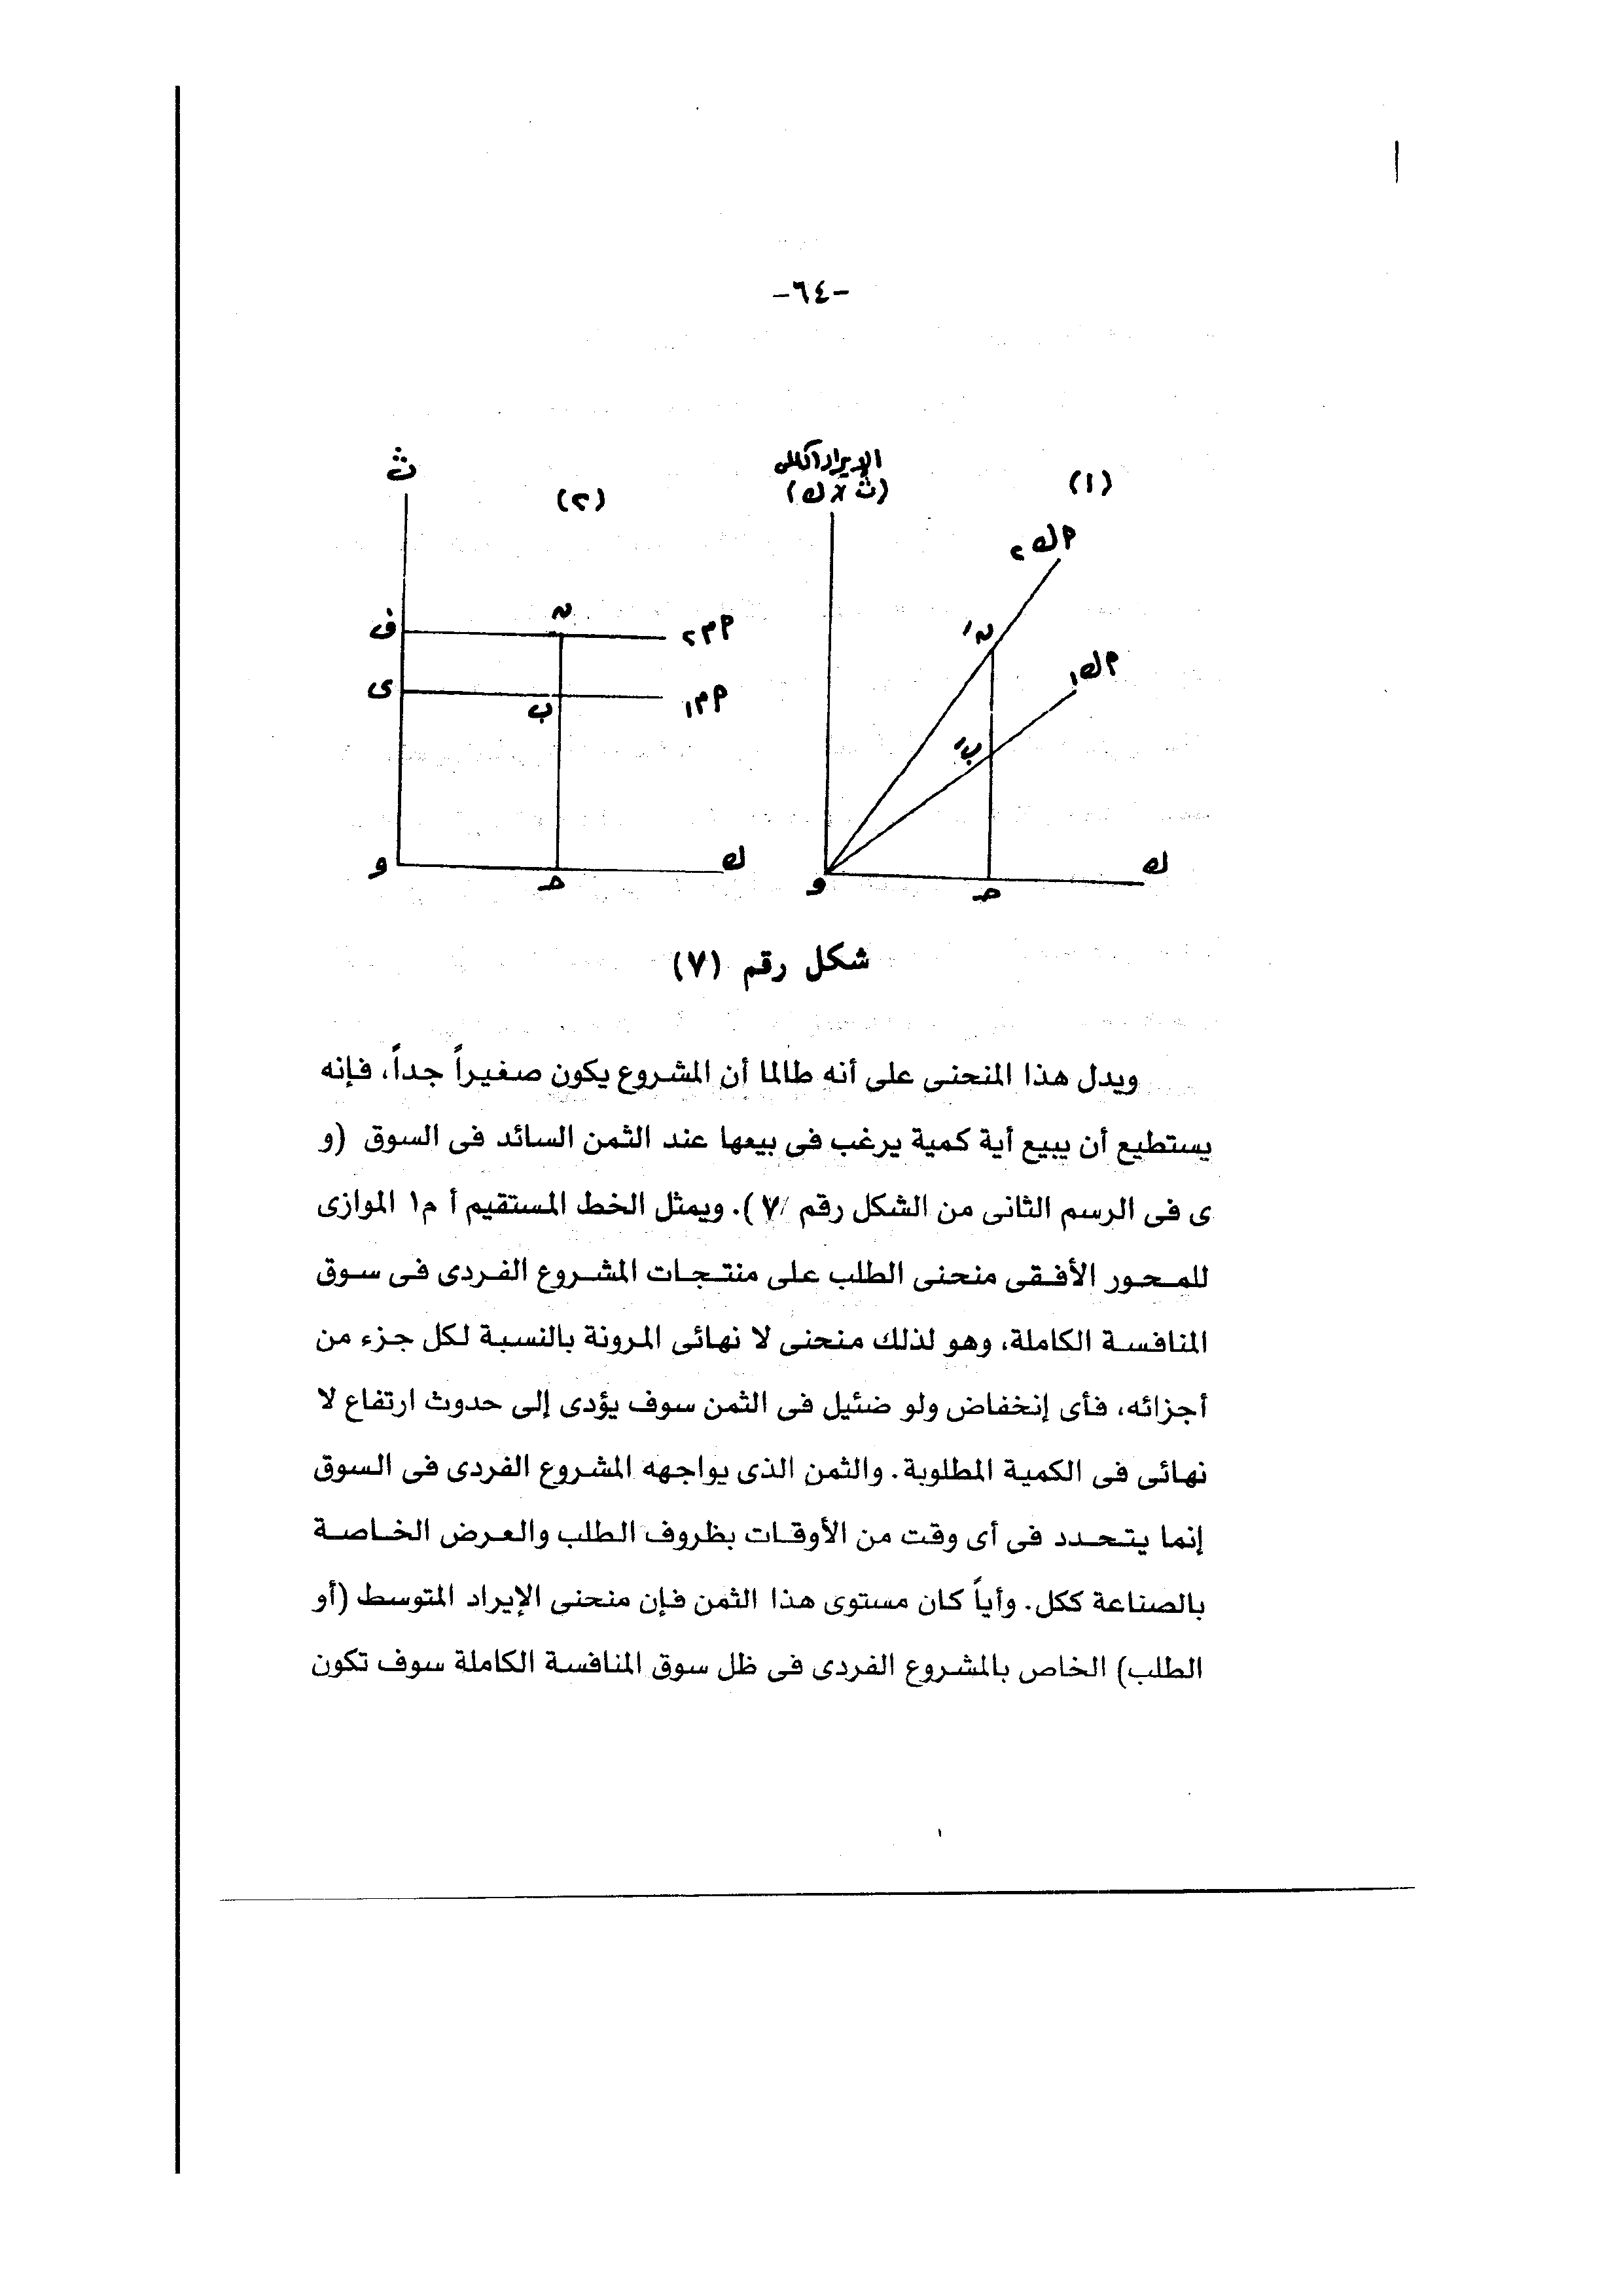 -٦٤-
(١)
الإيراد الكلى
(ث × ك)
(٢)
ث
أ ك٢
ن/
أ ك١
ب/
ك
و
حـ
ن
ف
أ م٢
ى
أ م١
ب
ك
و
حـ
شكل رقم (٧)
ويدل هذا المنحنى على أنه طالما أن المشروع يكون صغيراً جداً، فإنه
يستطيع أن يبيع أية كمية يرغب فى بيعها عند الثمن السائد فى السوق (و
ى فى الرسم الثانى من الشكل رقم /٧). ويمثل الخط المستقيم أ م١ الموازى
للمحور الأفقى منحنى الطلب على منتجات المشروع الفردى فى سوق
المنافسة الكاملة، وهو لذلك منحنى لا نهائى المرونة بالنسبة لكل جزء من
أجزائه، فأى إنخفاض ولو ضئيل فى الثمن سوف يؤدى إلى حدوث ارتفاع لا
نهائى فى الكمية المطلوبة. والثمن الذى يواجهه المشروع الفردى فى السوق
إنما يتحدد فى أى وقت من الأوقات بظروف الطلب والعرض الخاصة
بالصناعة ككل. وأياً كان مستوى هذا الثمن فإن منحنى الإيراد المتوسط (أو
الطلب) الخاص بالمشروع الفردى فى ظل سوق المنافسة الكاملة سوف تكون